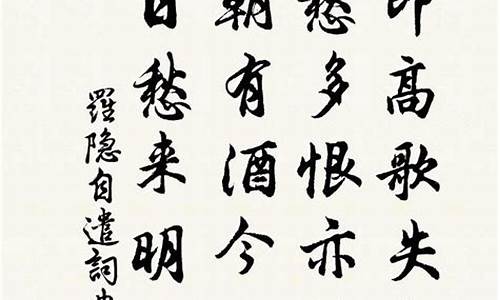 即高歌失
愁多恨亦
朝有酒今
日愁来明
羅隐自遣詞